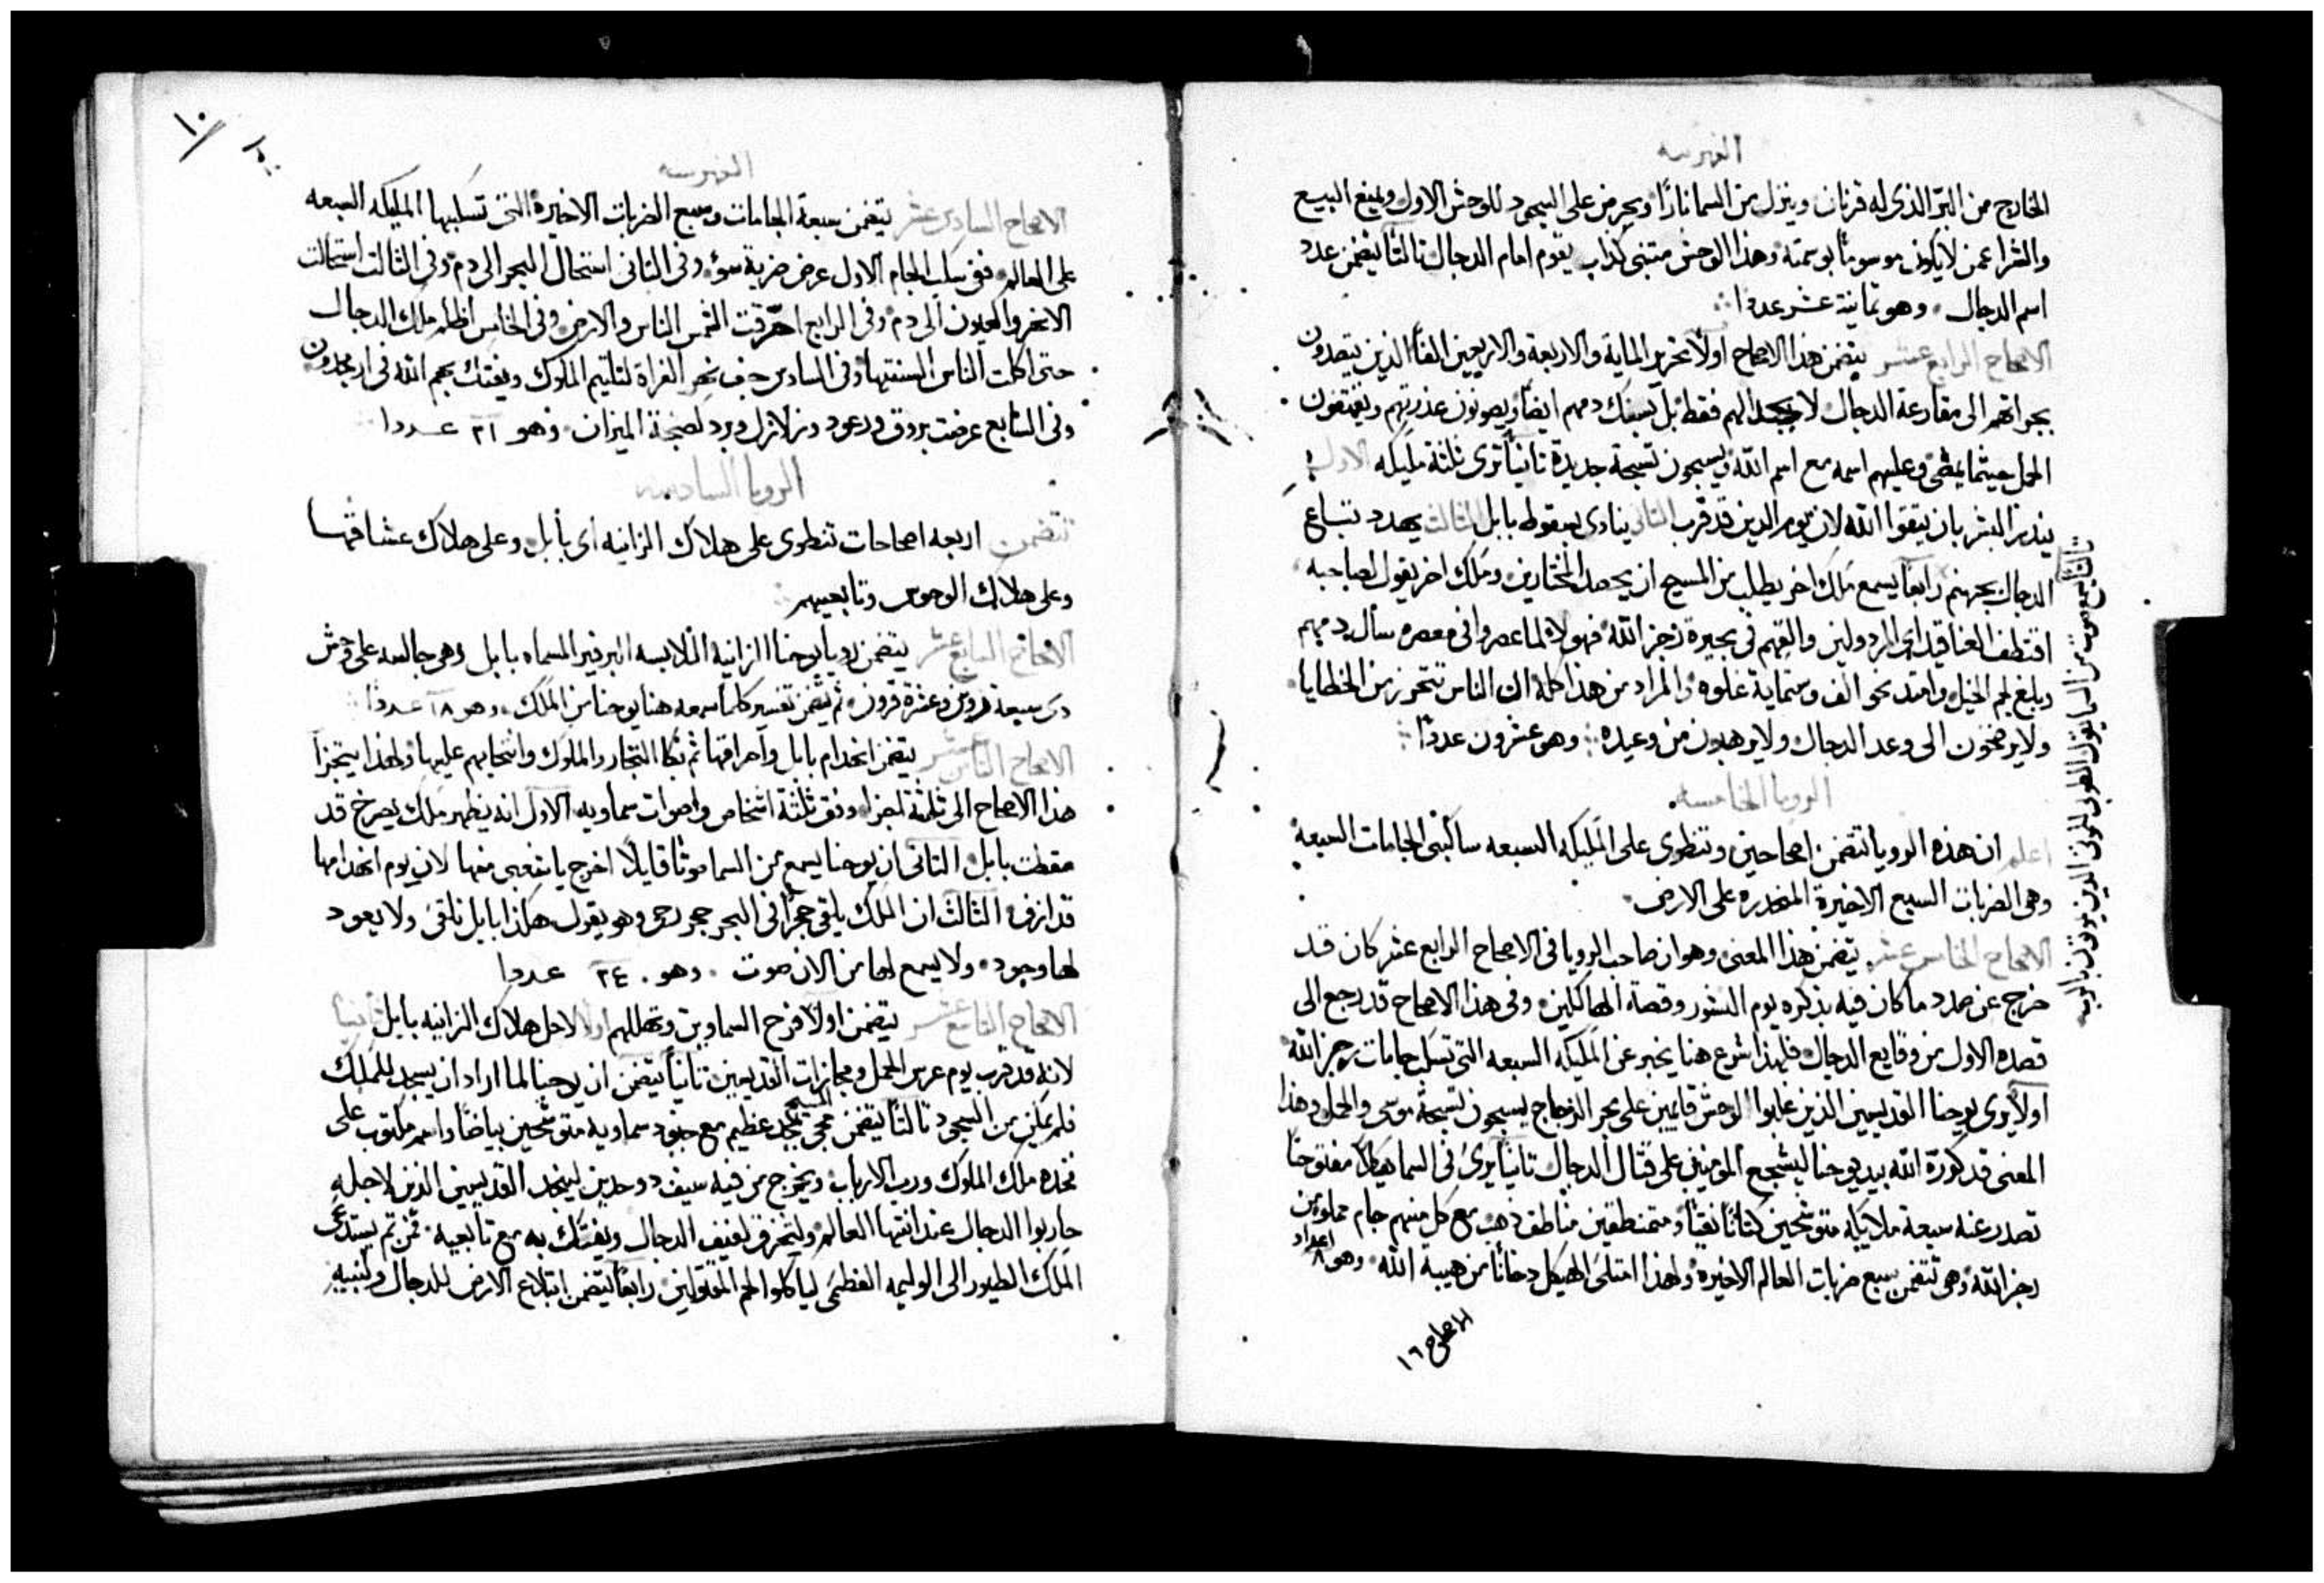 الفهرسه
الخارج من البر الذى له قرنان وينزل من السما نارًا ويحرض على السجود للوحش الاول ويمنع البيع
والشرا عمن لا يكون موسومًا بوسمته وهذا الوحش متنبى كذاب يقوم امام الدجال ثالثًا يتضمن عدد
اسم الدجال وهو ثمانية عشر عددا
الاصحاح الرابع عشر يتضمن هذا الاصحاح اولًا تحزير الماية والاربعة والاربعين الفًا الذين يتصدون
بجراتهم الى مقارعة الدجال لا فقط بل بسفك دمهم ايضًا ويصونون عذرتهم ويقتفون
الحمل حيثما يمضى وعليهم اسمه مع اسم الله ويسبحون تسبحة جديدة ثانيًا ترى ثلثة مليكه الاول
ينذر البشر بان يتقوا الله لان يوم الدين قد قرب الثانى ينادى بسقوط بابل الثالث يهدد تباع
الدجال بجهنم رابعًا يسمع ملاك اخر يطلب من المسيح ان يحصد المختارين وملك اخر يقول لصاحبه
اقتطف العناقيد اى المرذولين والقهم فى بحيرة رجز الله فهولا لما عصروا فى معصره سال دمهم
وبلغ لجم الخيل وامتد نحو الف وستماية غلوه والمراد من هذا كله ان الناس تتحرز من الخطايا
ولا يرضخون الى وعد الدجال ولا يرهبون من وعيده وهو عشرون عددًا
الرويا الخامسه
اعلم ان هذه الرويا تتضمن اصحاحين وتنطوى على المليكه السبعه ساكبى الجامات السبعه
وهى الضربات السبع الاخيرة المنحدره على الارض
الاصحاح الخامس عشر يتضمن هذا المعنى وهو ان صاحب الرويا فى الاصحاح الرابع عشر كان قد
خرج عن صدد ما كان فيه بذكره يوم النشور وقصة الهالكين وفى هذا الاصحاح قد رجع الى
قصده الاول من وقايع الدجال فلهذا شرع هنا يخبر عن المليكه السبعه التى تسكب جامات رجز الله
اولًا يرى يوحنا القديسين الذين غلبوا الوحش قايمين على بحر الزجاج يسبحون تسبحة موسى والحمل وهذا
المعنى قد كورة الله بيد يوحنا ليشجع المومنين على قتال الدجال ثانيًا يرى فى السما هيكلًا مفتوحًا
تصدر عنه سبعة ملايكه متوشحين كتانًا نقيًا ومتمنطقين مناطق ذهب مع كل منهم جام مملو من
رجز الله وهى تتضمن سبع ضربات العالم الاخيرة ولهذا امتلى الهيكل دخانًا من هيبة الله وهو ٨ اعداد
الاصحاح ١٦
ثالثًا يسمع صوت من السما يقول الطوبى للموتى الذين يموتون بالرب
١٠
الفهرسه
الاصحاح السادس عشر يتضمن سبعة الجامات وسبع الضربات الاخيرة التى تسكبها المليكه السبعه
على العالم ففى سكب الجام الاول عرض ضربة سوء وفى الثانى استحال البحر الى دم وفى الثالث استحالت
الانهر والعيون الى دم وفى الرابع احرقت الشمس الناس والارض وفى الخامس اظلم ملك الدجال
حتى اكلت الناس السنتها وفى السادس جف نهر الفراة لتلتيم الملوك ويفتك بهم الله فى ارمجدون
وفى السابع عرضت بروق ورعود وزلازل وبرد لصنجة الميزان وهو ٢١ عددا
الرويا السادسه
تتضمن اربعه اصحاحات تنطوى على هلاك الزانيه اى بابل وعلى هلاك عشاقها
وعلى هلاك الوحوش وتابعيهم
الاصحاح السابع عشر يتضمن رويا يوحنا الزانية اللابسه البرفير المسماه بابل وهى جالسه على وحش
ذى سبعة روس وعشرة قرون ثم يتضمن تفسير كلما سمعه هنا يوحنا من الملك وهو ١٨ عددا
الاصحاح الثامن عشر يتضمن انهدام بابل واحراقها ثم بكا التجار والملوك وانتحابهم عليها ولهذا يتجزا
هذا الاصحاح الى ثلثة اجزا وفق ثلثة اشخاص واصوات سماويه الاول انه يظهر ملك يصرخ قد
سقطت بابل الثانى ان يوحنا يسمع من السما صوتًا قايلًا اخرج يا شعبى منها لان يوم انهدامها
قد ازف الثالث ان الملك يلقى حجرًا فى البحر حجر رحى وهو يقول هكذا بابل تلقى ولا يعود
لها وجود ولا يسمع لها من الان صوت وهو ٢٤ عددا
الاصحاح التاسع عشر يتضمن اولًا فرح السماوين وتهللهم اولًا لاجل هلاك الزانيه بابل ثانيًا
لانه قد قرب يوم عرس الحمل ومجازات القديسين ثانيًا يتضمن ان يوحنا لما اراد ان يسجد للملك
فلم يمكن من السجود ثالثًا يتضمن مجى المسيح بمجد عظيم مع جنود سماويه متوشحين بياضًا واسمه مكتوب على
فخده ملك الملوك ورب الارباب ويخرج من فيه سيف ذو حدين لينجد القديسين الذين لاجله
حاربوا الدجال عند انتها العالم وليخزق لفيف الدجال ويفتك به مع تابعيه فمن ثم يستدعى
الملك الطيور الى الوليمه العظمى لياكلوا لحم المقتولين رابعًا يتضمن ابتلاع الارض للدجال ولنبيه